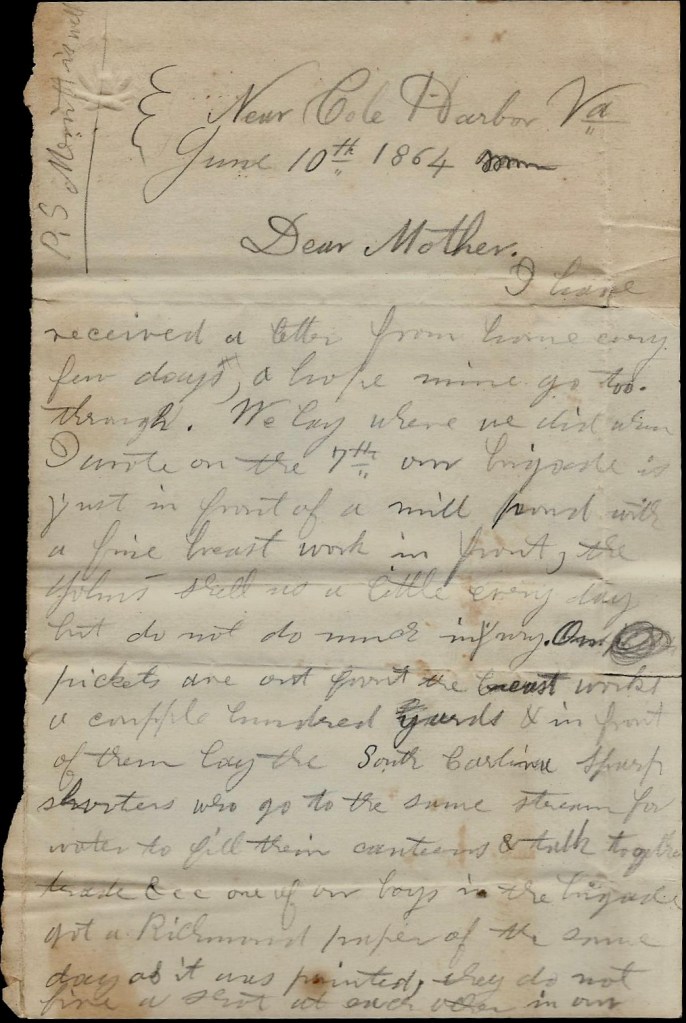 Near Cole Harbor Va
June 10th 1864
Dear Mother.
I have
received a letter from home every
few days, & hope mine go too.
through. We lay where we did when
I wrote on the 7th our brigade is
just in front of a mill pond with
a fine breast work in front, the
Johns shell us a little every day
but do not do much injury. Our
pickets are out front the breast works
a coupple hundred yards & in front
of them lay the South Carlina sharp
shorters who go to the same stream for
water to fill their canteens & talk togethe
trade &cc one of our boys in the brigade
got a Richmond paper of the same
day as it was printed, they do not
fire a shot at each other in our
P.S.